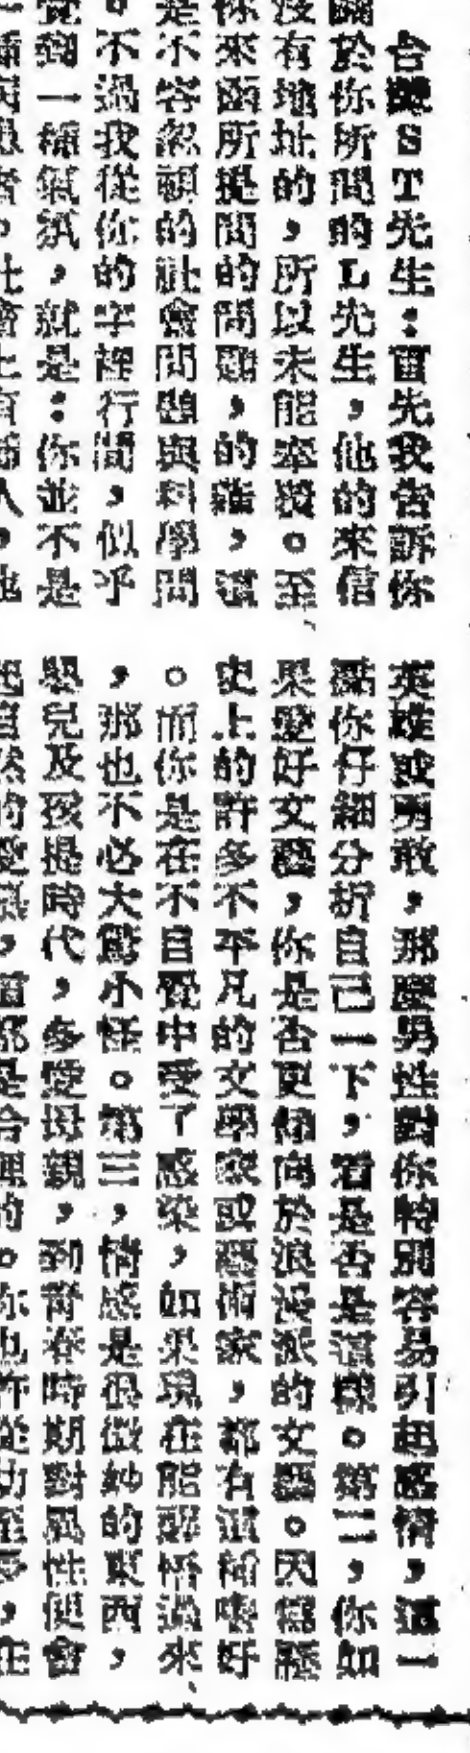 台鹽ST先生：首先我告訴你
關於你所問的L先生，他的來信
沒有地址的，所以未能奉覆。至
你來函所提問的問題，的確，這
是不容忽視的社會問題與科學問
。不過我從你的字裡行間，似乎
覺到一種氣氛，就是：你並不是
英雄或勇敢，那麼男性對你特別容易引起感情，這一
點你仔細分析自己一下，看是否是這樣。第二，你如
果愛好文藝，你是否更傾向於浪漫派的文藝。因為歷
史上的許多不平凡的文學家或藝術家，都有這種嗜好
。而你是在不自覺中受了感染，如果現在能醒悟過來
，那也不必大驚小怪。第三，情感是很微妙的東西，
嬰兒及孩提時代，多愛母親，到青春時期對異性便會